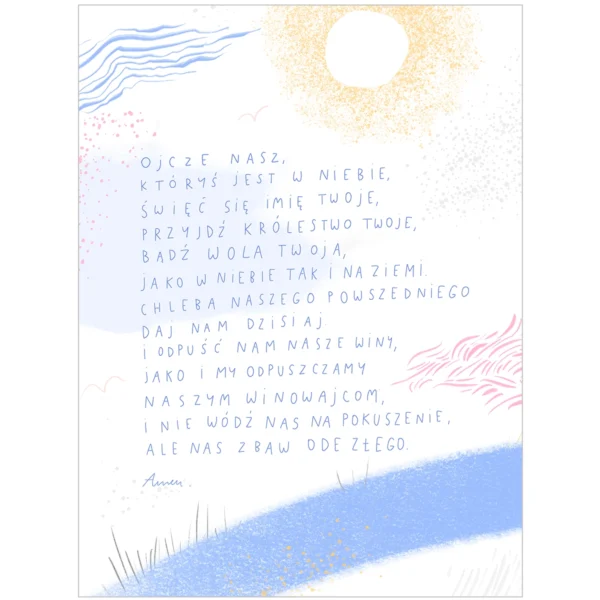 OJCZE NASZ,
KTÓRYŚ JEST W NIEBIE,
ŚWIĘĆ SIĘ IMIĘ TWOJE,
PRZYJDŹ KRÓLESTWO TWOJE,
BĄDŹ WOLA TWOJA,
JAKO W NIEBIE TAK I NA ZIEMI.
CHLEBA NASZEGO POWSZEDNIEGO
DAJ NAM DZISIAJ
I ODPUŚĆ NAM NASZE WINY,
JAKO I MY ODPUSZCZAMY
NASZYM WINOWAJCOM,
I NIE WÓDŹ NAS NA POKUSZENIE,
ALE NAS ZBAW ODE ZŁEGO.
Amen.